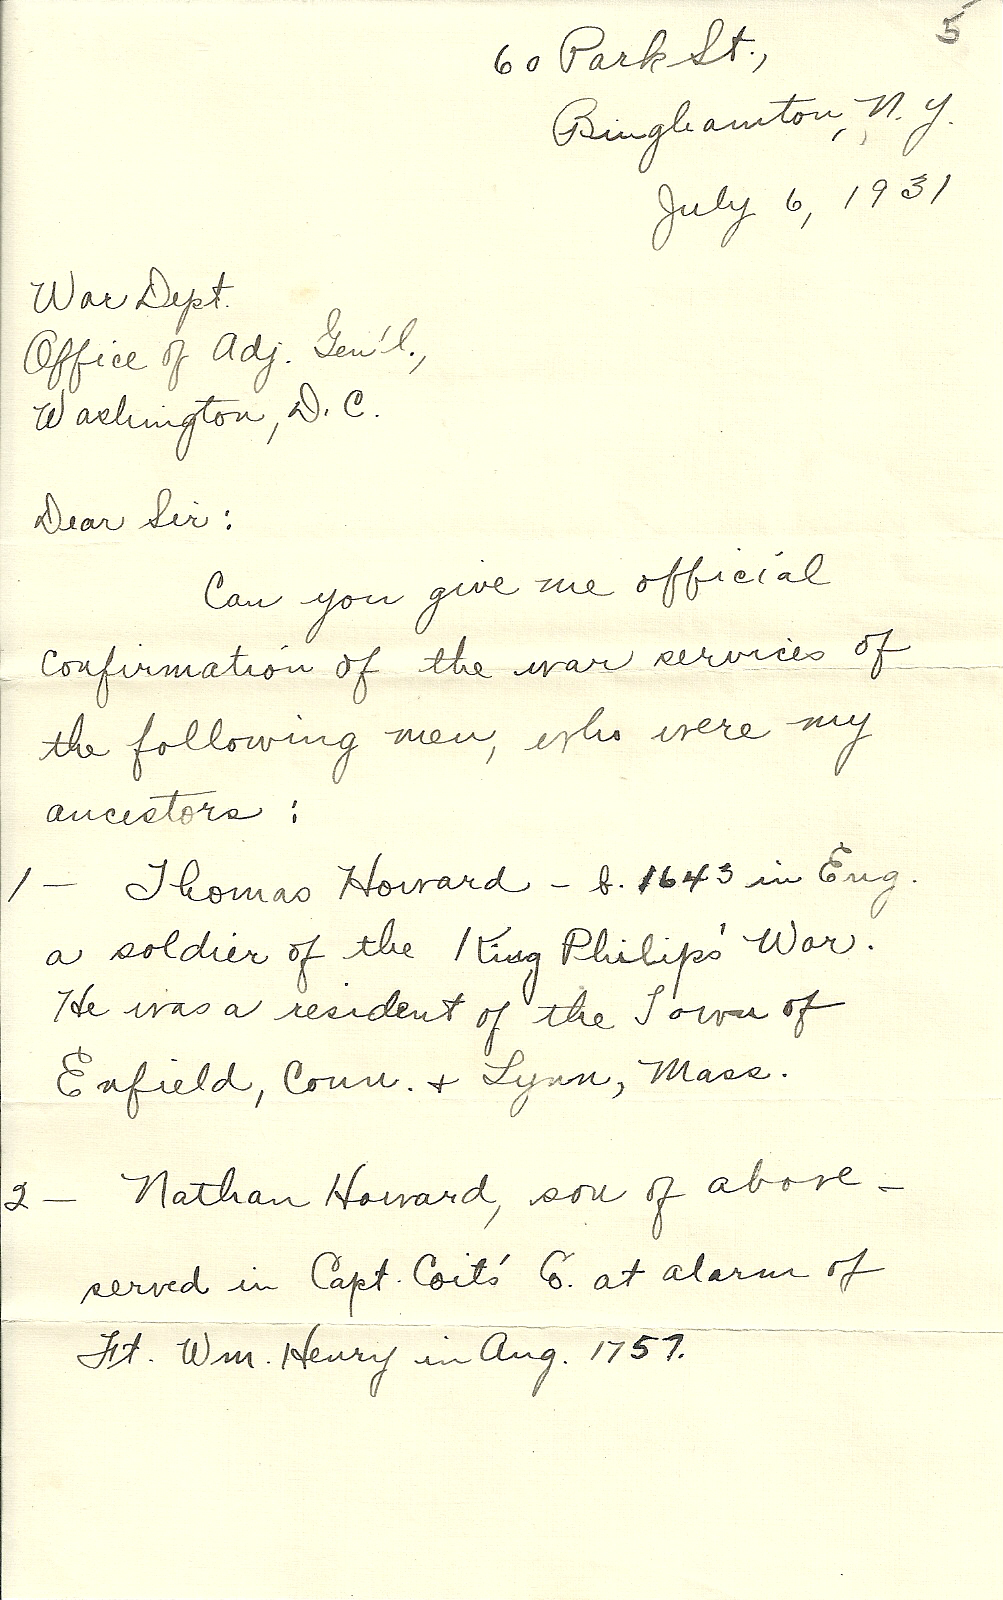 5
60 Park St.,
Binghamton, N. Y.
July 6, 1931
War Dept.
Office of Adj. Gen'l.,
Washington, D. C.
Dear Sir:
Can you give me official
confirmation of the war services of
the following men, who were my
ancestors:
1 - Thomas Howard - b. 1643 in Eng.
a soldier of the King Philips' War.
He was a resident of the Town of
Enfield, Conn. + Lynn, Mass.
2 - Nathan Howard, son of above -
served in Capt. Coits' Co. at alarm of
Ft. Wm. Henry in Aug. 1757.